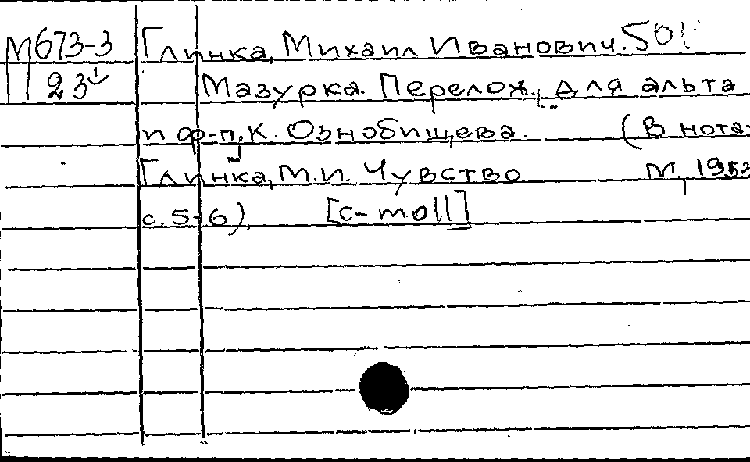 М673-3 Глинка, Михаил Иванович. 50
П 23 Мазурка. Перелож. для альта
и ф-п. К. Ознобищева. (В нота:
Глинка, М.И. Чувство М, 1953
с. 5-6) [c-moll]